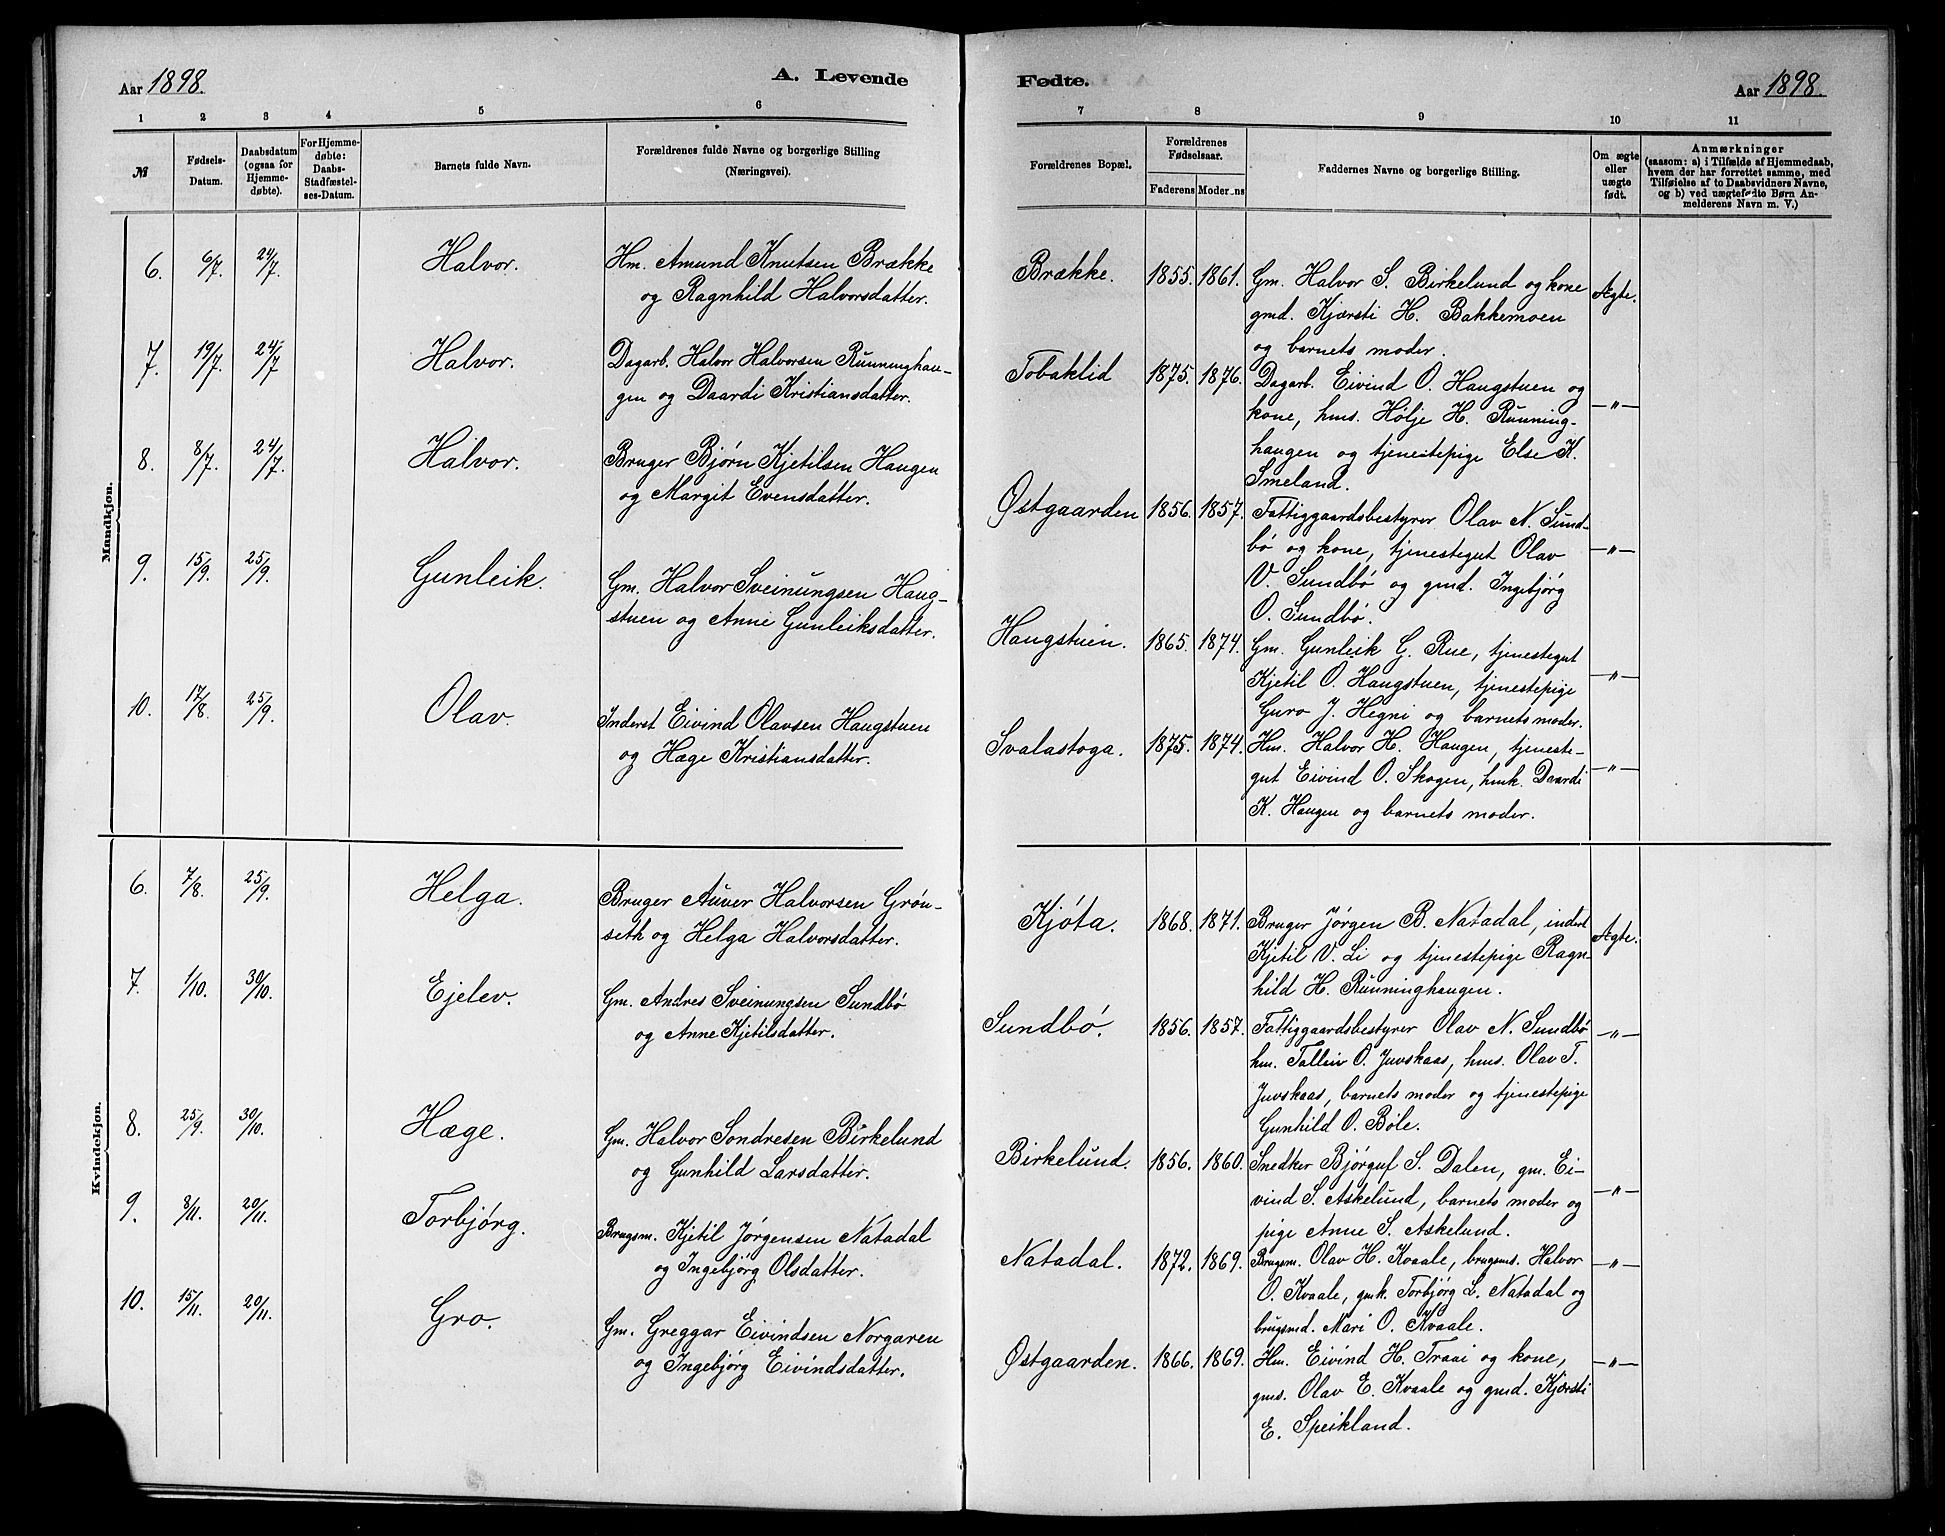 Aar 1898.
A. Levende
1 2 3 4 5 6
№
Fødsels-
Datum.
Daabsdatum
(ogsaa for
Hjemme-
døbte).
For Hjemme-
døbte:
Daabs-
Stadfæstel-
ses-Datum.
Barnets fulde Navn.
Forældrenes fulde Navne og borgerlige Stilling
(Næringsvei).
Mandkjøn.
6. 6/7. 24/7. Halvor. Hm. Amund Knutsen Brække
og Ragnhild Halvorsdatter.
7. 19/7. 24/7 Halvor. Dagarb. Halvor Halvorsen Rünninghau-
gen og Daardi Kristiansdatter.
8. 8/7. 24/7. Halvor. Bruger Bjørn Kjetilsen Haugen
og Margit Evensdatter.
9. 15/9. 25/9. Gunleik. Gm. Halvor Sveinungsen Haug-
stuen og Anne Gunleiksdatter.
10. 17/8. 25/9. Olav. Inderst Eivind Olavsen Haugstuen
og Hæge Kristiansdatter.
Kvindekjøn.
6. 7/8. 25/9. Helga. Bruger Auver Halvorsen Grön-
seth og Helga Halvorsdatter.
7. 1/10. 30/10. Ejelev. Gm. Andres Sveinungsen Sundbö
og Anne Kjetilsdatter.
8. 25/9. 30/10. Hæge. Gm. Halvor Sondresen Birkelund
og Gunhild Larsdatter.
9. 8/11. 20/11. Torbjörg. Brugsm. Kjetil Jørgensen Natadal
og Ingebjörg Olsdatter.
10. 15/11. 20/11. Gro. Gm. Greggar Eivindsen Norgaren
og Ingebjörg Eivindsdatter.
Fødte.
Aar 1898.
7 8 9 10 11
Forældrenes Bopæl.
Forældrenes
Fødselsaar.
Faderens Moderens
Faddernes Navne og borgerlige Stilling.
Om ægte
eller
uægte
født.
Anmærkninger
(saasom: a) i Tilfælde af Hjemmedaab,
hvem der har forrettet samme, med
Tilføielse af to Daabsvidners Navne,
og b) ved uægtefødte Børn An-
melderens Navn m. V.)
Brække. 1855. 1861. Gm. Halvor S. Birkelund og kone Ægte.
gmd. Kjærsti H. Bakkemoen
og barnets moder.
Tobaklid 1875. 1876. Dagarb. Eivind O. Haugstuen og
kone, hms. Hølje H. Rünning- —"—
haugen og tjenestepige Else K.
Smeland.
Østgaarden 1856. 1857. Fattiggaardsbestyrer Olav N. Sund-
bö og kone, tjenestegut Olav —"—
V. Sundbö og gmd. Ingebjörg
O. Sundbö.
Haugstuen. 1865. 1874. Gm. Gunleik G. Rue, tjenestegut
Kjetil O. Haugstuen, tjenestepige —"—
Guro J. Hegni og barnets moder.
Svalastoga. 1875. 1874. Hm. Halvor H. Haugen, tjeneste-
gut Eivind O. Skogen, hmk. Daardi —"—
K. Haugen og barnets moder.
Kjöta. 1868. 1871. Bruger Jørgen B. Natadal, inderst Ægte.
Kjetil V. Li og tjenestepige Ragn-
hild H. Rünninghaugen.
Sundbö. 1856. 1857. Fattiggaardsbestyrer Olav N. Sundbö —"—
hm. Talleiv O. Juvskaas, hms. Olav T.
Juvskaas, barnets moder og tjenestepige
Gunhild O. Böle.
Birkelund. 1856. 1860. Snedker Bjørguf S. Dalen, gm. Ei-
vind S. Askelund, barnets moder og —"—
pige Anne S. Askelund.
Natadal. 1872. 1869. Brugsm. Olav H. Kvaale, brugsms. Halvor —"—
O. Kvaale, gmk. Torbjörg L. Natadal og
brugsmd. Mari O. Kvaale.
Østgaarden. 1866. 1869. Hm. Eivind H. Traai og kone, —"—
gms. Olav E. Kvaale og gmd. Kjærsti
E. Speikland.